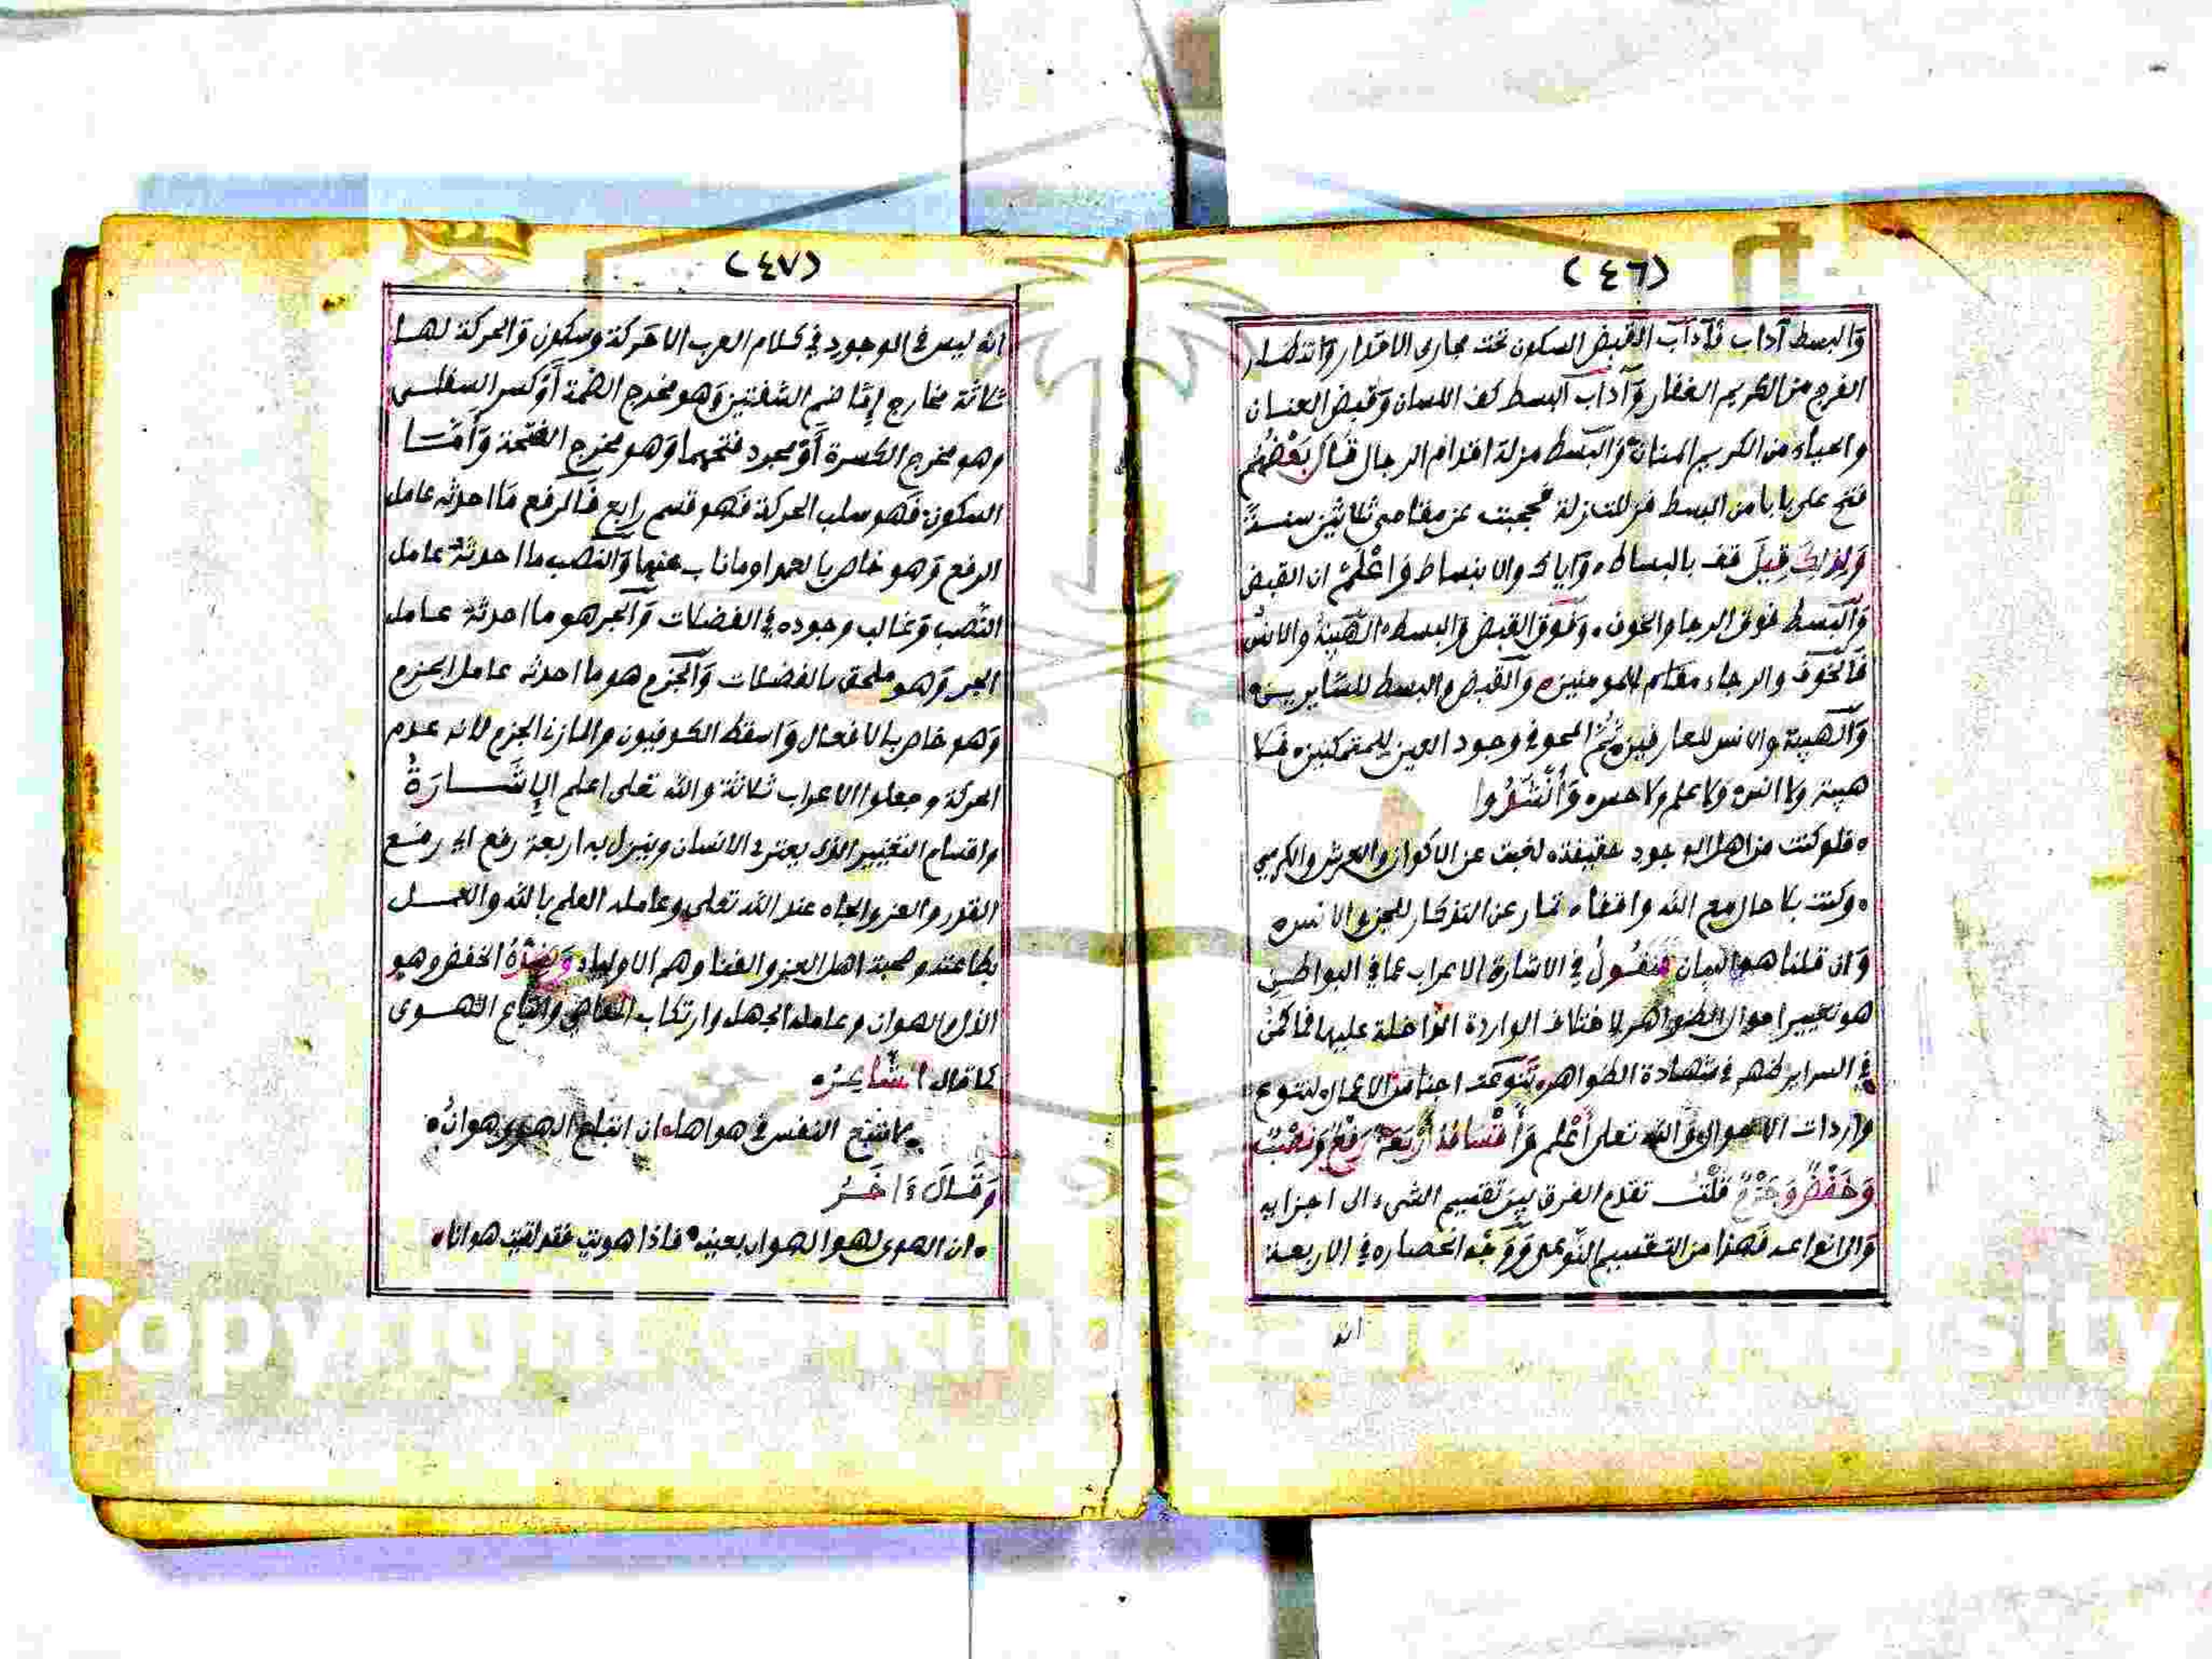 (٤٦)
وَالبسط آداب فآداب القبض السكون تحت مجارى الاقدار وانتظار
الفرج من الكريم الغفار وَآداب البسط كف اللسان وَقبض العنان
والحياء من الكريم المنان وَالبسط مزلة اقدام الرجال قَالَ بَعْضُهُم
فتح على بابا من البسط فزللت زلة فحجبت عن مقامى ثلاثين سنة
وَلِذَلِكَ قِيلَ قف بالبساط وَاياك والانبساط وَاعْلَمْ ان القبض
وَالبسط فوق الرجا والخوف وَفَوْق القبض وَالبسط الهَيبة والانس
فَالخوف والرجاء مقام للمومنين وَالقبض والبسط للسايرين
وَالهيبة والانس للعارفين ثُمَّ المحو في وجود العين للمتمكنين فلا
هيبة ولا انس وَلا علم ولا حس وَأَنْشَدُوا
فلو كنت من اهل الوجود حقيقة لغبت عن الاكوان والعرش والكرسى
وكنت بلا حال مع الله واقفا تصار عن التذكار للجن والانس
وَان قلنا هو البيان فَنَقُولُ في الاشارة الاعراب عما في البواطن
هو تغيير احوال الظواهر لاختلاف الواردة الداخلة عليها فما كمن
في السراير ظهر في شهادة الظواهر تَنَوَّعَت اجناس الاعمال لتنوع
واردات الاحوال وَالله تعلى أَعْلم وَأَقْسَامُهُ أَرْبَعَةٌ رَفْعٌ وَنَصْبٌ
وَخَفْضٌ وَجَزْمٌ قُلْتُ تقدم الفرق بين تقسيم الشىء الى اجزايه
وَالى انواعه فَهذا من التقسيم النَّوعى وَوَجْه انحصاره في الاربعة
انه
(٤٧)
انه ليس في الوجود في كلام العرب الا حركة وسكون وَالحركة لها
ثلاثة مخارج إمَّا ضم الشفتين وَهو مخرج الضمة أَوْ كسر السفلى
وهو مخرج الكسرة أَوْ مجرد فتحهما وَهو مخرج الفتحة وَأَمَّا
السكون فَهو سلب الحركة فَهو قسم رابع فَالرفع مَا احدثه عامل
الرفع وَهو خاص بالعمد اوما ناب عنها وَالنصب ما احدثه عامل
النَّصب وَغالب وجوده في الفضلات وَالجر هو ما احدثه عامل
الجر وَهو ملحق بالفضلات وَالجزم هو ما احدثه عامل الجزم
وَهو خاص بالافعال وَاسقط الكوفيون والمازنى الجزم لانه عدم
الحركة وجعلوا الاعراب ثلاثة والله تعلى اعلم الإِشَارَةُ
واقسام التغيير الذى يعترى الانسان وينزل به اربعة رفع اى رفع
القدر والعز والجاه عند الله تعلى وعامله العلم بالله والعمل
بطاعته وصحبة اهل العز والغنا وهم الاولياء وَضِدُّهُ الخفض وهو
الذل والهوان وعامله الجهل وارتكاب المعاصى واتباع الهوى
كما قال الشَّاعِرُ
لا تتبع النفس في هواها ان اتباع الهوى هوانُ
وَقَالَ ءَاخَرُ
ان الهوى لهو الهوان بعينه فاذا هويت فقد لقيت هوانا